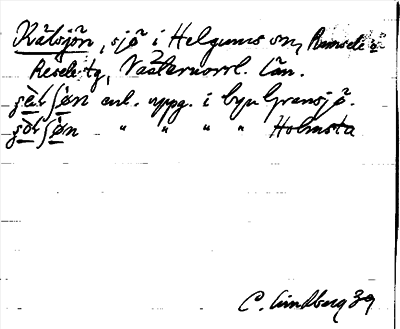 Kätsjön, sjö i Helgums sn, Ramsele o
Resele tg, Västernorrl. län.
enl. uppg. i byn Gransjö.
" " " " Holmsta
C. Lindberg 39